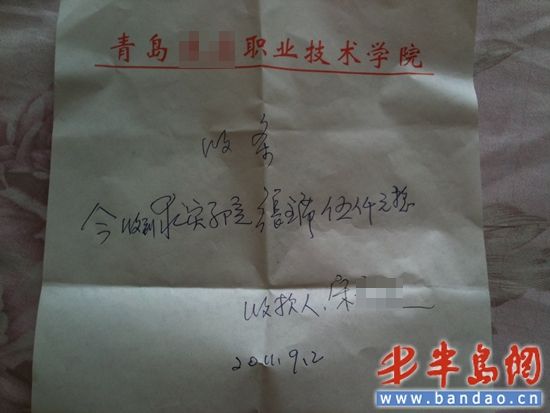 青岛职业技术学院
收条
今收到求实 伍仟元整
收款人：宋
2011.9.2
半岛网
www.bandao.cn